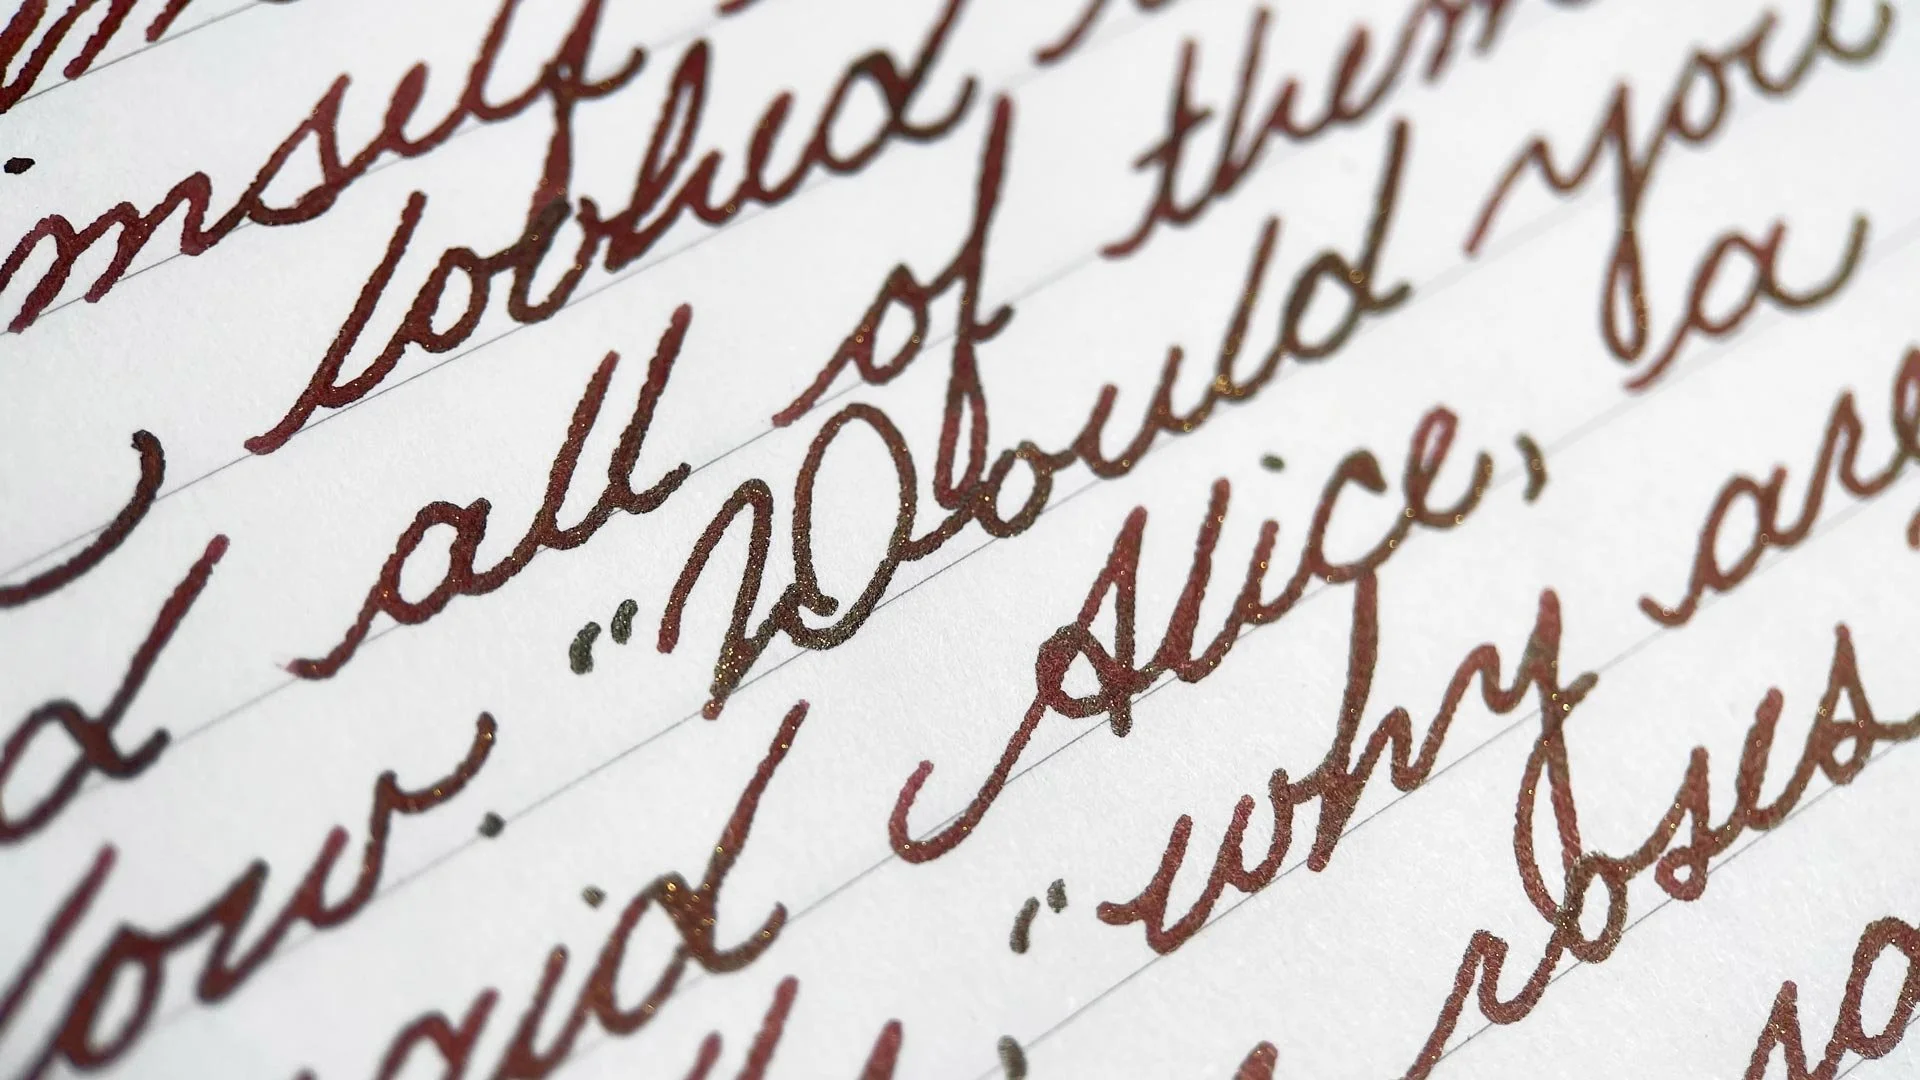 imself
looked
d all of them
low. "Would you
said Alice, a
"why are
roses